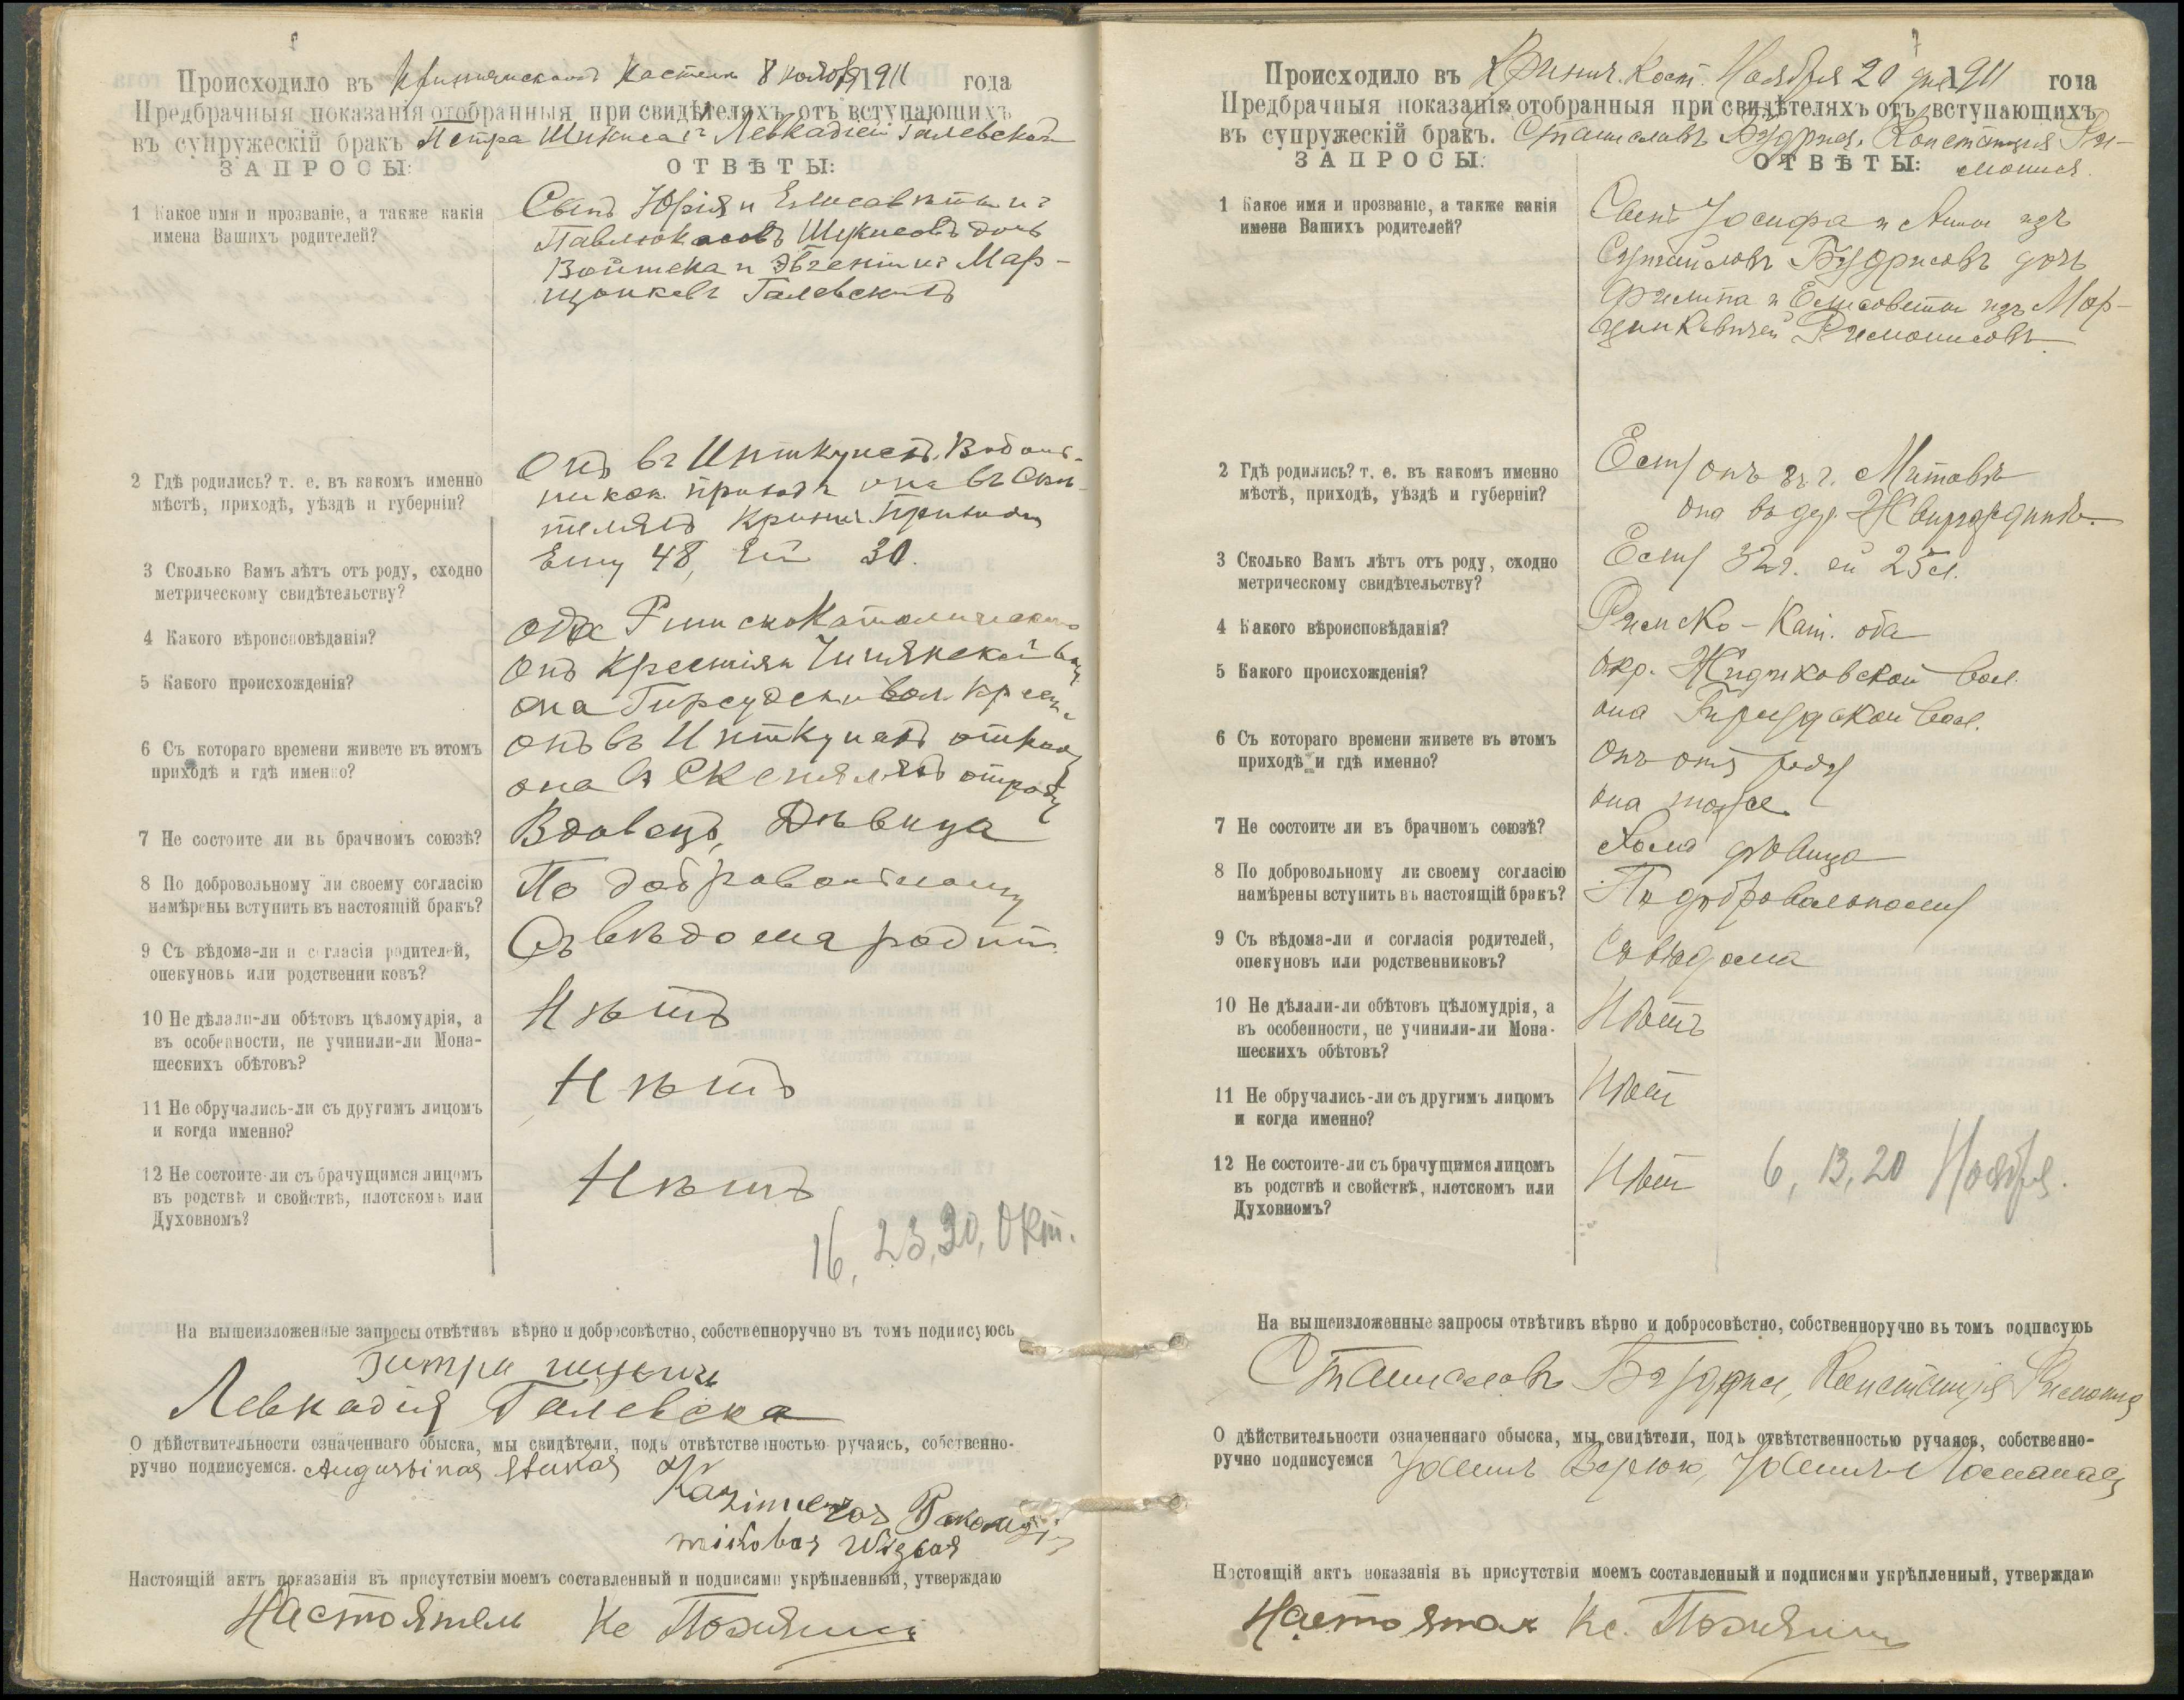 Происходило въ Костелѣ 8 ноября 1911 года
Предбрачныя показанія отобранныя при свидѣтеляхъ отъ вступающихъ
въ супружескій бракъ Петра Шукиса съ Левкадіей Галевской
ЗАПРОСЫ: ОТВѢТЫ:
1 Какое имя и прозваніе, а также какія
имена Вашихъ родителей?
Сынъ Юрія и Елисаветы
Шукисовъ дочь
Войтека и Мар-
Галевскихъ
2 Гдѣ родились? т. е. въ какомъ именно
мѣстѣ, приходѣ, уѣздѣ и губерніи?
Онъ въ
она въ
3 Сколько Вамъ лѣтъ отъ роду, сходно
метрическому свидѣтельству?
Ему 48, Ей 30.
4 Какого вѣроисповѣданія?
оба Римско Католическаго
5 Какого происхожденія?
онъ вол
она вол. крест.
6 Съ котораго времени живете въ этомъ
приходѣ и гдѣ именно?
онъ въ отроду
она въ отроду
7 Не состоите ли въ брачномъ союзѣ?
Вдовецъ, Дѣвица
8 По добровольному ли своему согласію
намѣрены вступить въ настоящій бракъ?
По добровольному
9 Съ вѣдома-ли и согласія родителей,
опекуновъ или родственниковъ?
Съ вѣдома родит.
10 Не дѣлали-ли обѣтовъ цѣломудрія, а
въ особенности, не учинили-ли Мона-
шескихъ обѣтовъ?
Нѣтъ
11 Не обручались-ли съ другимъ лицомъ
и когда именно?
Нѣтъ
12 Не состоите-ли съ брачущимся лицомъ
въ родствѣ и свойствѣ, плотскомъ или
Духовномъ?
Нѣтъ
16, 23, 30, Окт.
На вышеизложенные запросы отвѣтивъ вѣрно и добросовѣстно, собственноручно въ томъ подписуюсь
Левкадія Галевска
О дѣйствительности означеннаго обыска, мы свидѣтели, подъ отвѣтственностью ручаясь, собственно-
ручно подписуемся.
Настоящій актъ показанія въ присутствіи моемъ составленный и подписями укрѣпленный, утверждаю
Настоятель Кс
7
Происходило въ Кринич. Кост. Ноября 20 дня 1911 года
Предбрачныя показанія отобранныя при свидѣтеляхъ отъ вступающихъ
въ супружескій бракъ. Станиславъ Будрисъ, Констанція Ри-
ЗАПРОСЫ: ОТВѢТЫ: монися.
1 Какое имя и прозваніе, а также какія
имена Вашихъ родителей?
Сынъ Іосифа и Анны изъ
Будрисовъ дочь
Филипа и Елисаветы изъ Мар-
цинкевичей Римонисовъ
2 Гдѣ родились? т. е. въ какомъ именно
мѣстѣ, приходѣ, уѣздѣ и губерніи?
онъ въ г. Митавѣ
она въ дер.
3 Сколько Вамъ лѣтъ отъ роду, сходно
метрическому свидѣтельству?
32г. ей 25л.
4 Какого вѣроисповѣданія?
Римско-Кат. оба
5 Какого происхожденія?
Жидиковской вол.
она вол.
6 Съ котораго времени живете въ этомъ
приходѣ и гдѣ именно?
онъ отъ роду
она тоже
7 Не состоите ли въ брачномъ союзѣ?
дѣвица
8 По добровольному ли своему согласію
намѣрены вступить въ настоящій бракъ?
По добровольному
9 Съ вѣдома-ли и согласія родителей,
опекуновъ или родственниковъ?
Съ вѣдома
10 Не дѣлали-ли обѣтовъ цѣломудрія, а
въ особенности, не учинили-ли Мона-
шескихъ обѣтовъ?
Нѣтъ
11 Не обручались-ли съ другимъ лицомъ
и когда именно?
Нѣтъ
12 Не состоите-ли съ брачущимся лицомъ
въ родствѣ и свойствѣ, плотскомъ или
Духовномъ?
Нѣтъ 6, 13, 20 Ноября.
На вышеизложенные запросы отвѣтивъ вѣрно и добросовѣстно, собственноручно въ томъ подписуюь
Станиславъ Констанція
О дѣйствительности означеннаго обыска, мы свидѣтели, подъ отвѣтственностью ручаясь, собственно-
ручно подписуемся
Настоящій актъ показанія въ присутствіи моемъ составленный и подписями укрѣпленный, утверждаю
Кс.